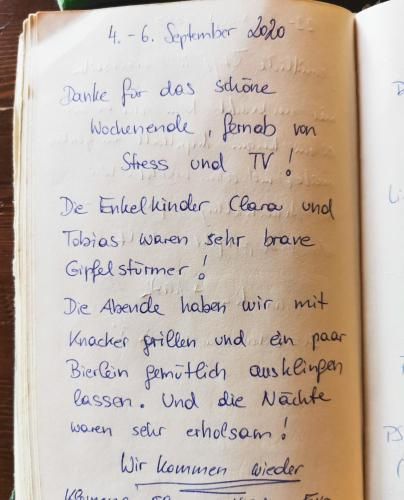 4. - 6. September 2020
Danke für das schöne
Wochenende, fernab von
Stress und TV!
Die Enkelkinder Clara und
Tobias waren sehr brave
Gipfelstürmer!
Die Abende haben wir mit
Knacker grillen und ein paar
Bierlein gemütlich ausklingen
lassen. Und die Nächte
waren sehr erholsam!
Wir kommen wieder